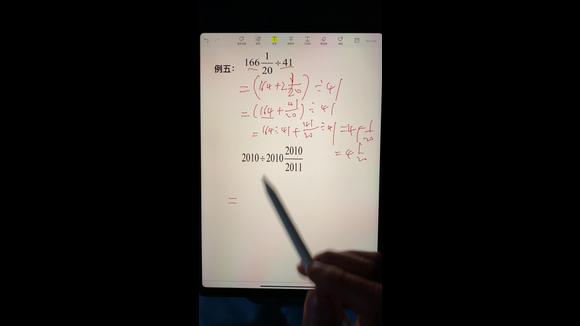 例五： 166 1/20 ÷ 41
= (164 + 2 1/20) ÷ 41
= (164 + 41/20) ÷ 41
= 164 ÷ 41 + 41/20 ÷ 41 = 4 + 1/20
= 4 1/20
2010 ÷ 2010 2010/2011
=